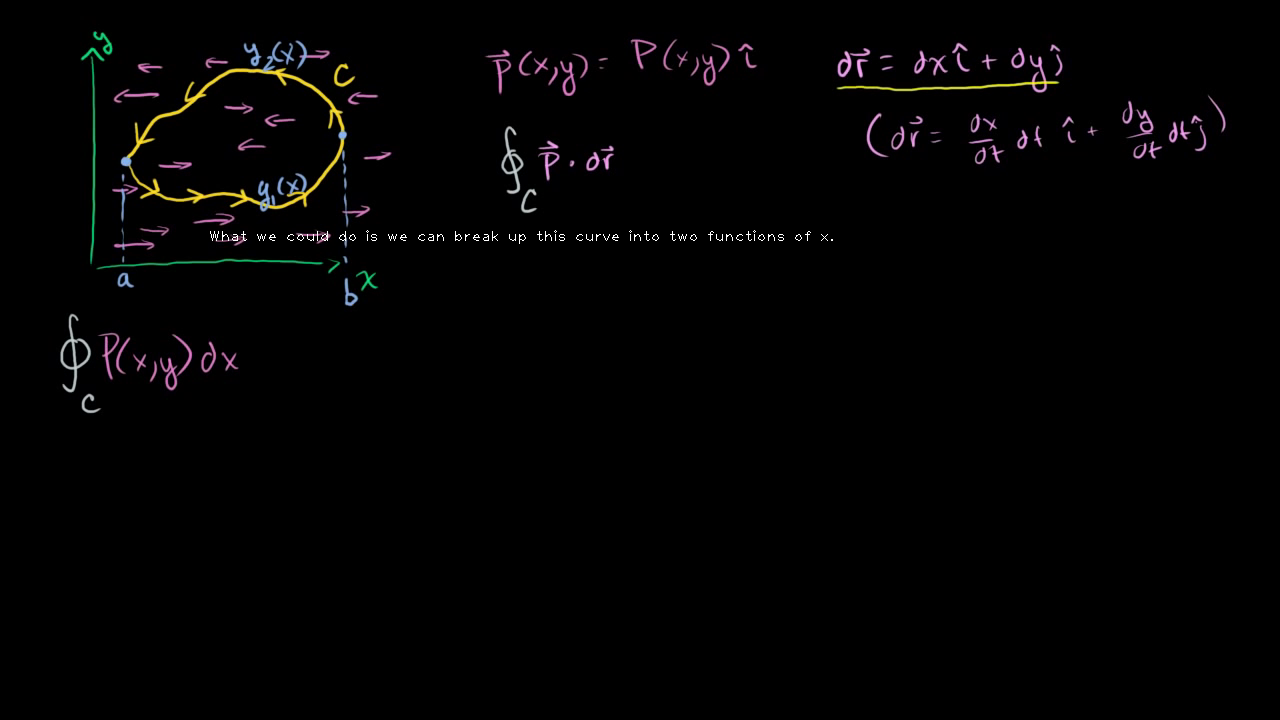 y
y₂(x)
C
y₁(x)
a
b
x
P⃗(x,y) = P(x,y) î
dr⃗ = dx î + dy ĵ
(dr⃗ = dx/dt dt î + dy/dt dt ĵ)
∮_C P⃗ · dr⃗
What we could do is we can break up this curve into two functions of x.
∮_C P(x,y) dx